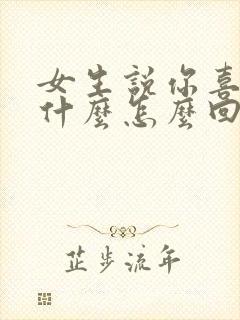 女生説你喜
什麼怎麼回
芷步流年